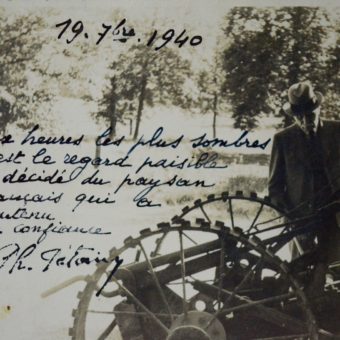 19. 7bre. 1940
x heures les plus sombres
est le regard paisible
décidé du paysan
ançais qui a
utenu
confiance
Ph. Pétain